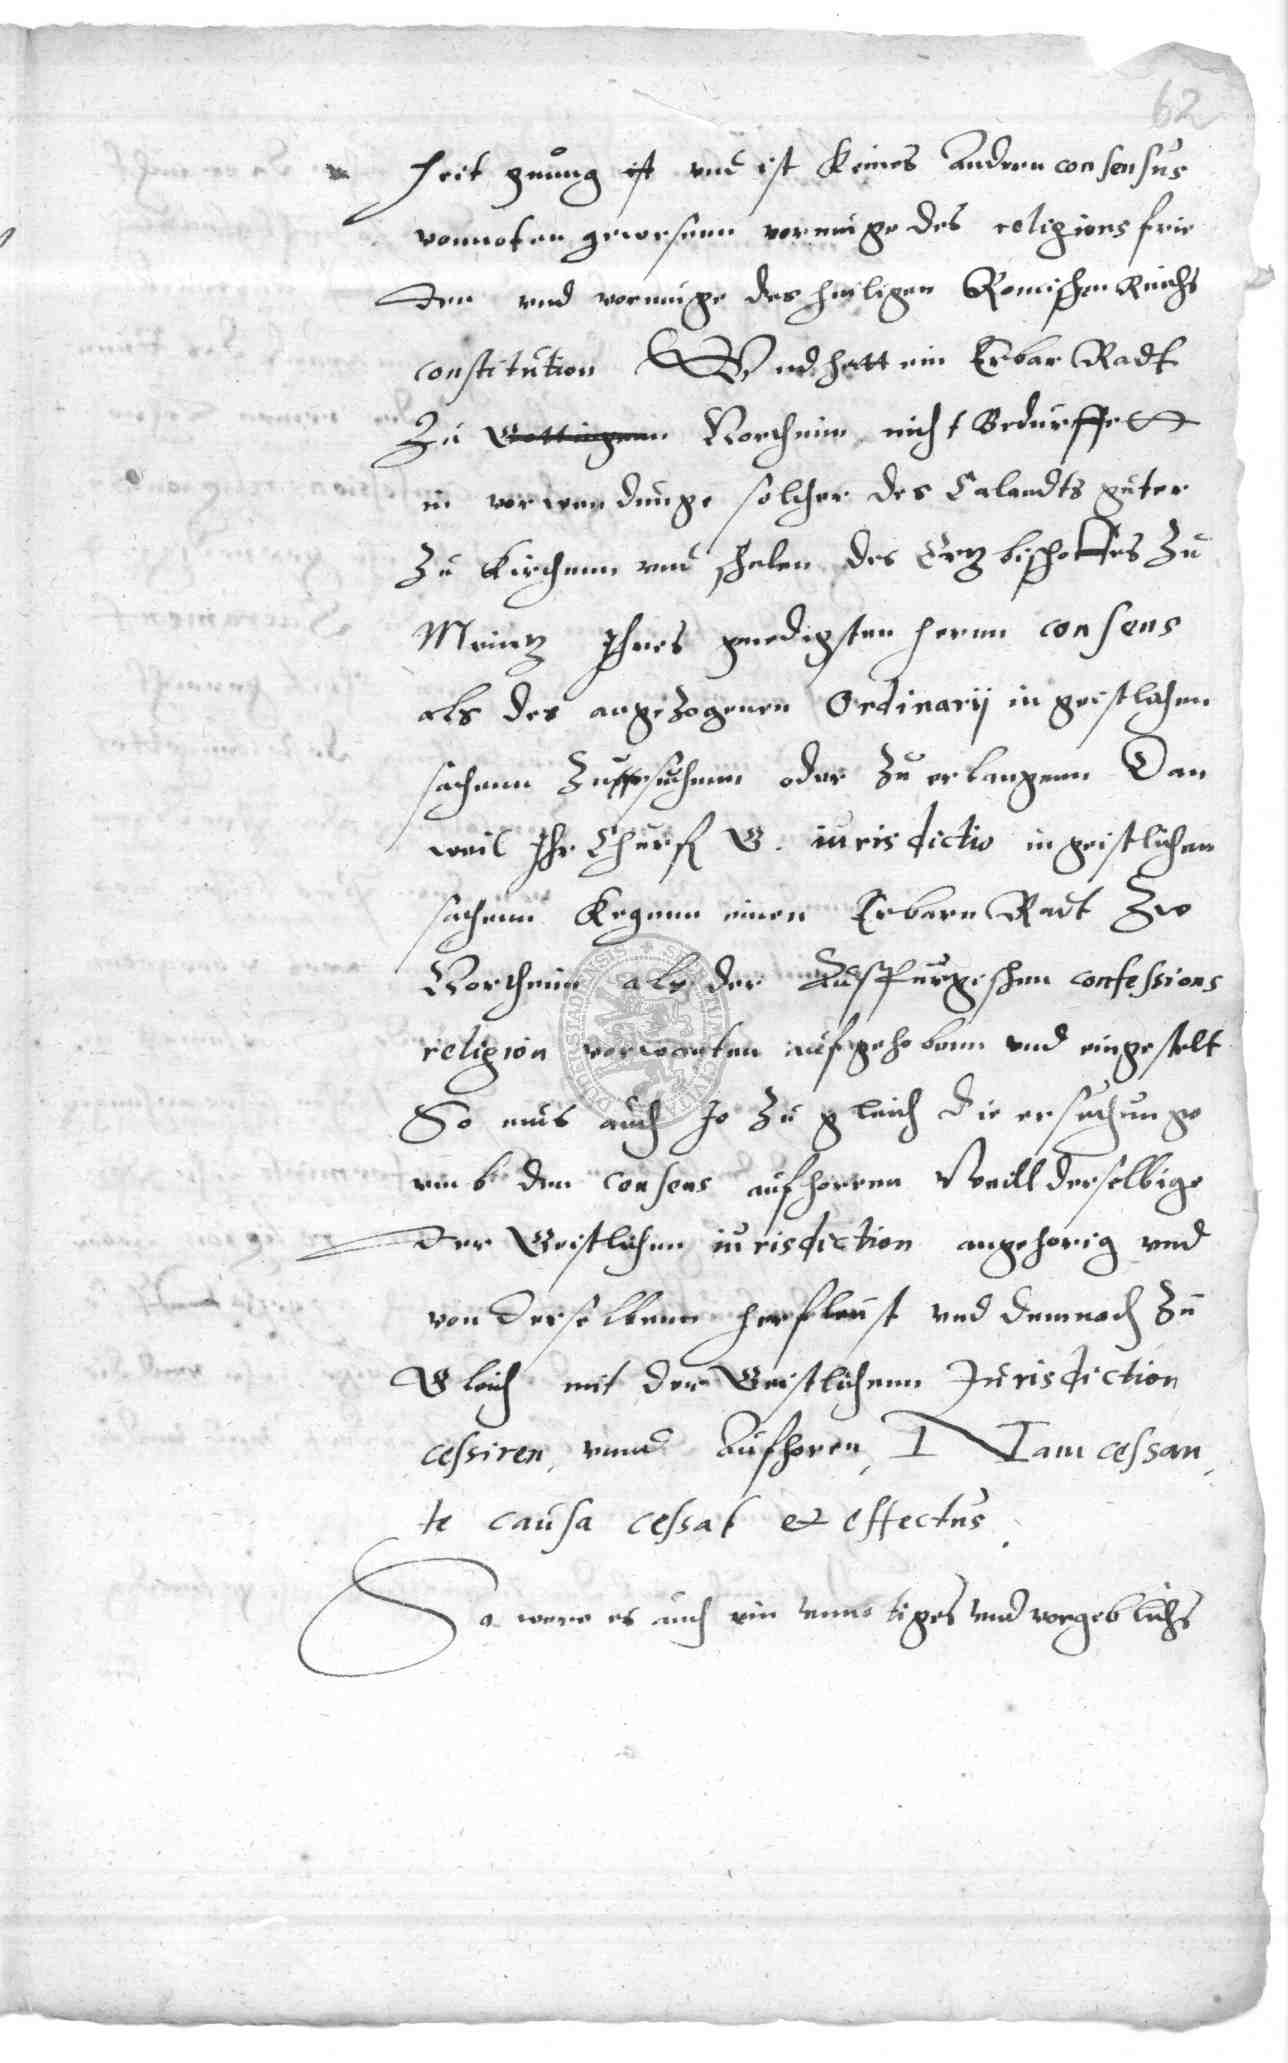 62
heit gnung ist vnd ist keines andern consensus
vonnoten gewesenn vermuge des religions frie
den vnd vermuge des heiligen Romischen Reichs
constitution Vnd hatt ein Erbar Radt
zu Gottingenn Northeim nicht bedurffett
in verwendunge solcher des Calandts guter
zu kirchenn vnd scholen des Ertzbischoffes zu
Meintz Ihres gnedigsten hernn consens
als des angezogenen Ordinarij in geistlichenn
sachenn zu ersuchenn oder zu erlangenn Dan
weil Ihr Churf G. iurisdictio in geistlichenn
sachenn kegenn einen Erbarn Radt zu
Northeim als der Augspurgischen confessions
religion verwanten aufgehobenn vnd eingestelt
So mus auch Jo zu gleich die ersuchunge
vmb den consens aufhorenn Weill derselbige
der Geistlichenn iurisdiction angehorig vnd
von derselbenn herfleust vnd demnach zu
Gleich mit der Geistlichenn Jurisdiction
cessiren, vnnd aufhoren, Nam cessan
te causa cessat et effectus.
So were es auch ein vnnotiges vnd vorgeblichs
SIGILLUM CIVITATIS DUDERSTADENSIS